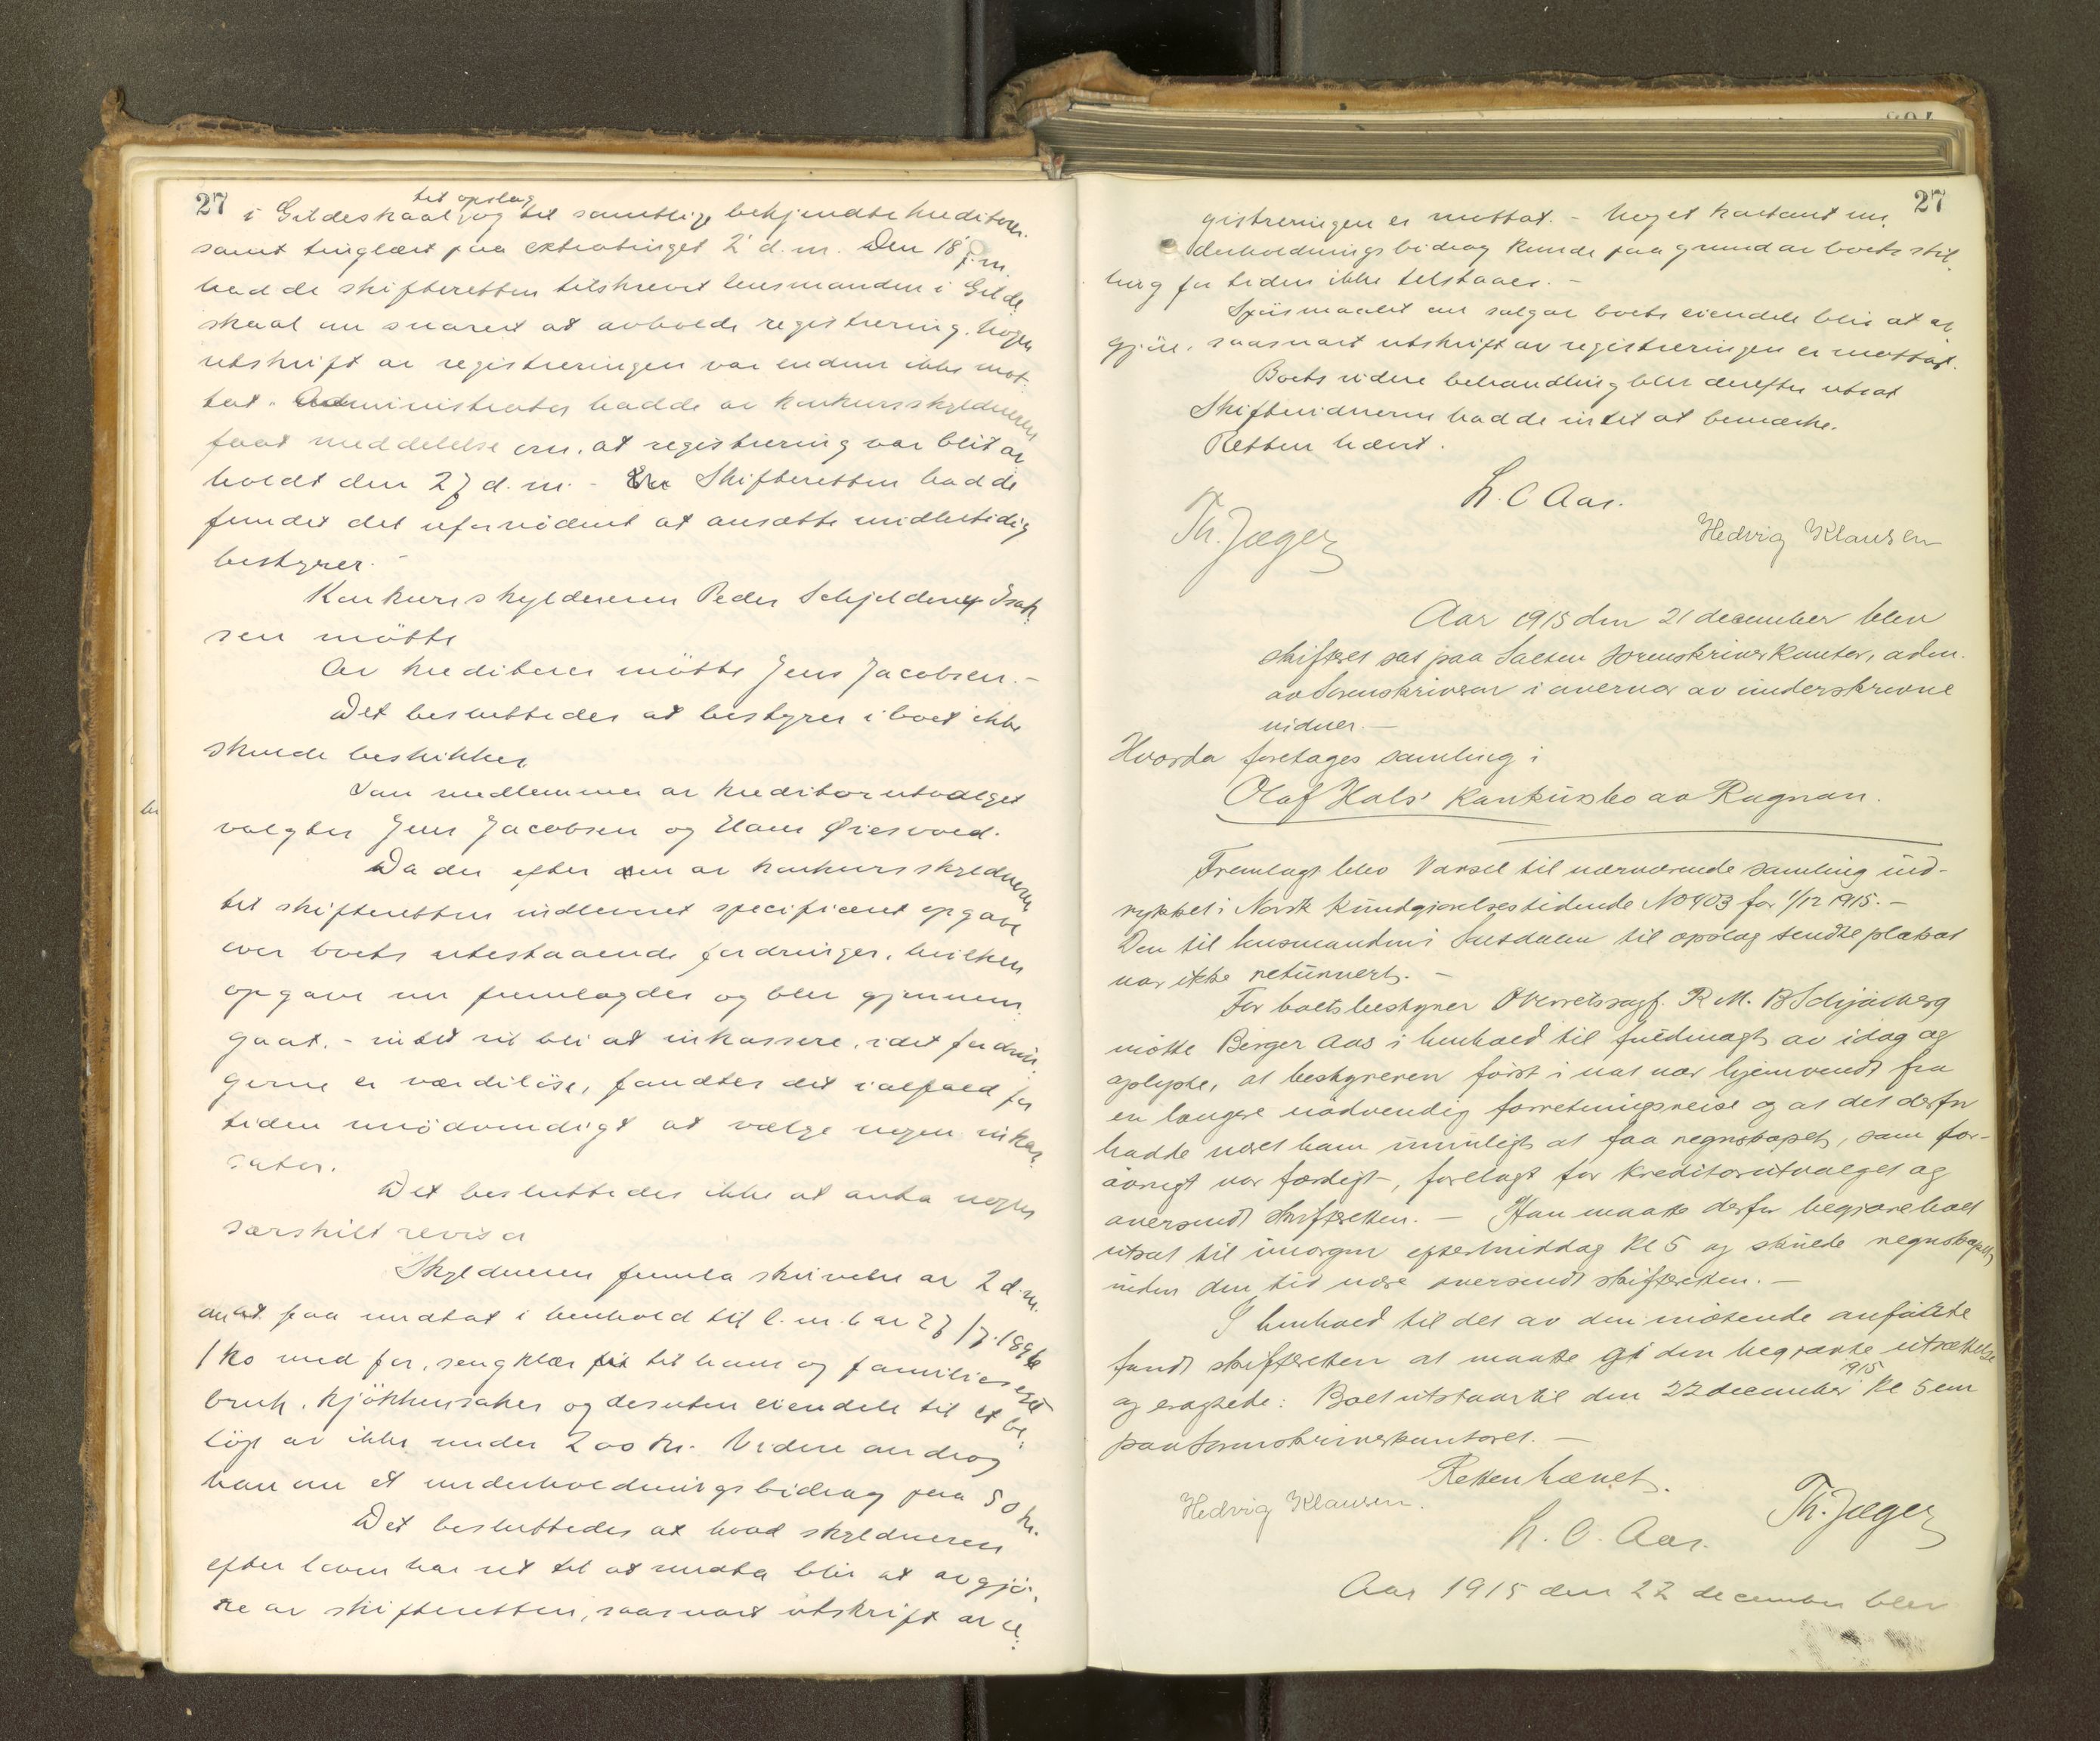 27
til opslag
i Gildeskaal, og til samtlige bekjendte kreditorer
samt tinglæst paa extratinget 2' d.m. Den 18' f.m.
hadde skifteretten tilskrevet lensmanden i Gilde,
skaal om snarest at avholde registrering. Nogen
utskrift av registreringen var endnu ikke mot,
tat. Administrator hadde av konkursskyldneren
faat meddelelse om, at registrering var blit av
holdt den 27 d.m. - Skifteretten hadde
fundet det ufornödent at ansætte midlertidig
bestyrer. -
Konkursskyldneren Peder Schjelderup Isak,
sen mötte
Av kreditorer mötte Jens Jacobsen. -
Det besluttedes at bestyrer i boet ikke
skulde beskikkes
Som medlemmer av kreditorutvalget
valgtes Jens Jacobsen og Hans Øiesvold.
Da der efter den av konkursskyldneren
til skifteretten indleveret specificeret opgave
over boets utestaaende fordringer, hvilken
opgave nu fremlagdes og blev gjennem,
gaat. - intet vil bli at inkassere, idet fordrin,
gerne er værdilöse, fandtes det ialfald for
tiden unödvendigt at vælge nogen inkas,
sator.
Det besluttedes ikke at anta nogen
særskilt revisor
Skyldneren fremla skrivelse av 2 d.m.
om at faa undtat i henhold til l. m. b av 27/7.1896
1 ko med for, sengklær til hans og families eget
bruk, kjökkensaker og desuten eiendele til et be,
löp av ikke under 200 kr. Videre androg
han om et underholdningsbidrag paa 50 kr.
Det besluttedes at hvad skyldneren
efter loven har ret til at undta blir at avgjö,
re av skifteretten, saasnart utskrift av re,
27
gistreringen er mottat. - Noget kontant un,
derholdningsbidrag kunde paa grund av boets stil,
ling for tiden ikke tilstaaes. -
Spörsmaalet om salg av boets eiendele blir at av
gjöre, saasnart utskrift av registreringen er mottat.
Boets videre behandling blev derefter utsat
Skiftevidnerne hadde intet at bemærke.
Retten hævet.
L. C Aas.
Th. Jæger
Hedvig Klausen
Aar 1915 den 21 december blev
skifteret sat paa Salten sorenskriverkontor, adm.
av Sorenskriveren i overvær av underskrevne
vidner. -
Hvorda foretages samling i
Olaf Hals' konkursbo av Rognan.
Fremlagt blev Varsel til nærværende samling ind-
rykket i Norsk Kundgjørelsestidende No 403 for 1/12 1915. -
Den til lensmanden i Saltdalen til opslag sendte plakat
var ikke returnert. -
For boets bestyrer Overretssagf. R. M. B Schjølberg
møtte Birger Aas i henhold til fuldmagt av idag og
oplyste, at bestyreren først i nat var hjemvendt fra
en længre nødvendig forretningsreise og at det derfor
hadde været ham umuligt at faa regnskapet, som for-
øvrigt var færdigt -, forelagt for kreditorutvalget og
oversendt skifteretten. - Han maatte derfor begjære boet
utsat til imorgen eftermiddag kl 5 og skulde regnskapet
inden den tid være oversendt skifteretten. -
I henhold til det av den møtende anførte
fandt skifteretten at maatte gi den begjærte utsættelse
1915
og eragtede: Boet utstaar til den 22 december kl 5 em
paa Sorenskriverkontoret. -
Retten hævet.
Hedvig Klausen.
L. C. Aas.
Th. Jæger
Aar 1915 den 22 december blev